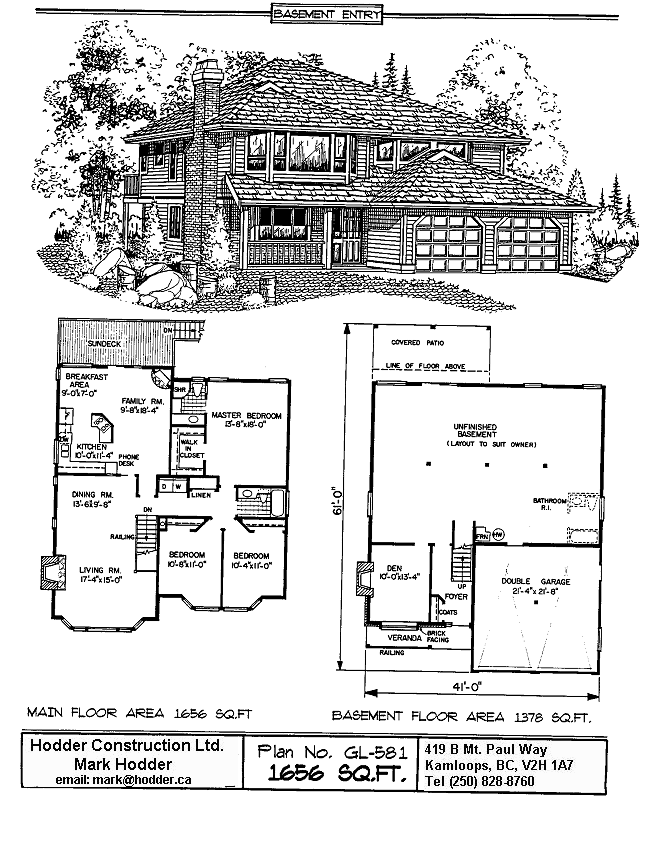 BASEMENT ENTRY
SUNDECK
DN
BREAKFAST
AREA
9'-0"x7'-0"
FAMILY RM.
9'-8"x18'-4"
SHR
MASTER BEDROOM
13'-8"x18'-0"
KITCHEN
10'-0"x11'-4"
PHONE
DESK
WALK
IN
CLOSET
D W
LINEN
DINING RM.
13'-6"x9'-8"
DN
RAILING
LIVING RM.
17'-4"x15'-0"
BEDROOM
10'-8"x11'-0"
BEDROOM
10'-4"x11'-0"
MAIN FLOOR AREA 1656 SQ.FT
COVERED PATIO
LINE OF FLOOR ABOVE
UNFINISHED
BASEMENT
(LAYOUT TO SUIT OWNER)
BATHROOM
R.I.
FRN
HW
61'-0"
DEN
10'-0"x13'-4"
UP
FOYER
COATS
DOUBLE GARAGE
21'-4"x21'-8"
VERANDA
BRICK
FACING
RAILING
41'-0"
BASEMENT FLOOR AREA 1378 SQ.FT.
Hodder Construction Ltd.
Mark Hodder
email: mark@hodder.ca
Plan No. GL-581
1656 SQ.FT.
419 B Mt. Paul Way
Kamloops, BC, V2H 1A7
Tel (250) 828-8760